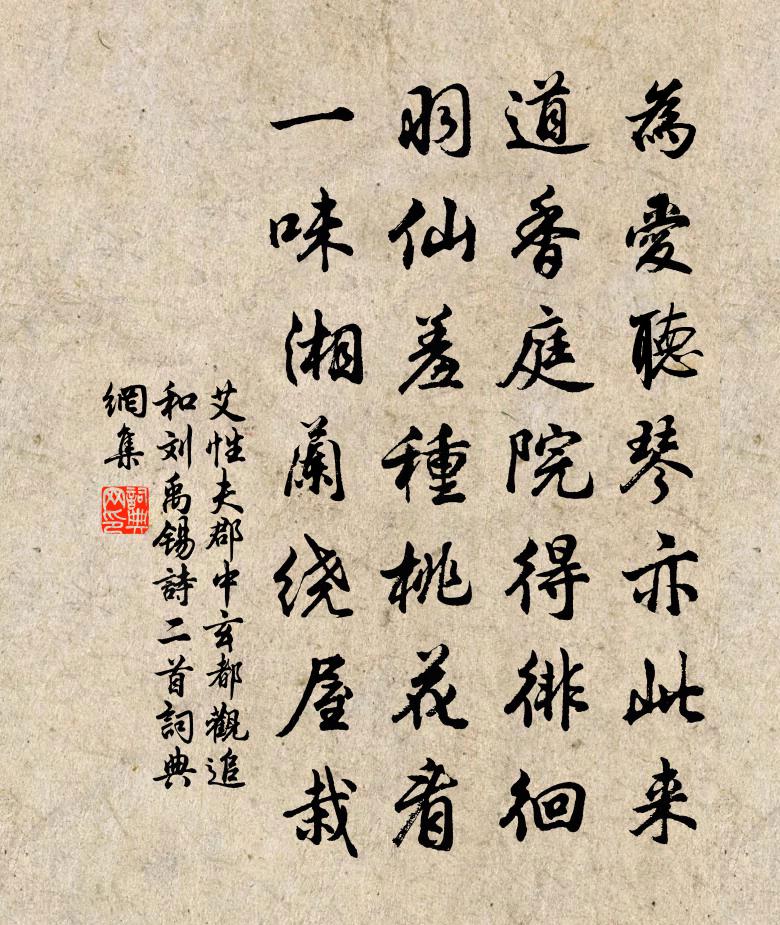 為愛聽琴亦此来
道香庭院得徘徊
羽仙羞種桃花看
一味湘蘭绕屋栽
艾性夫郡中玄都觀追
和刘禹锡詩二首詞典
網集
詞典
网印